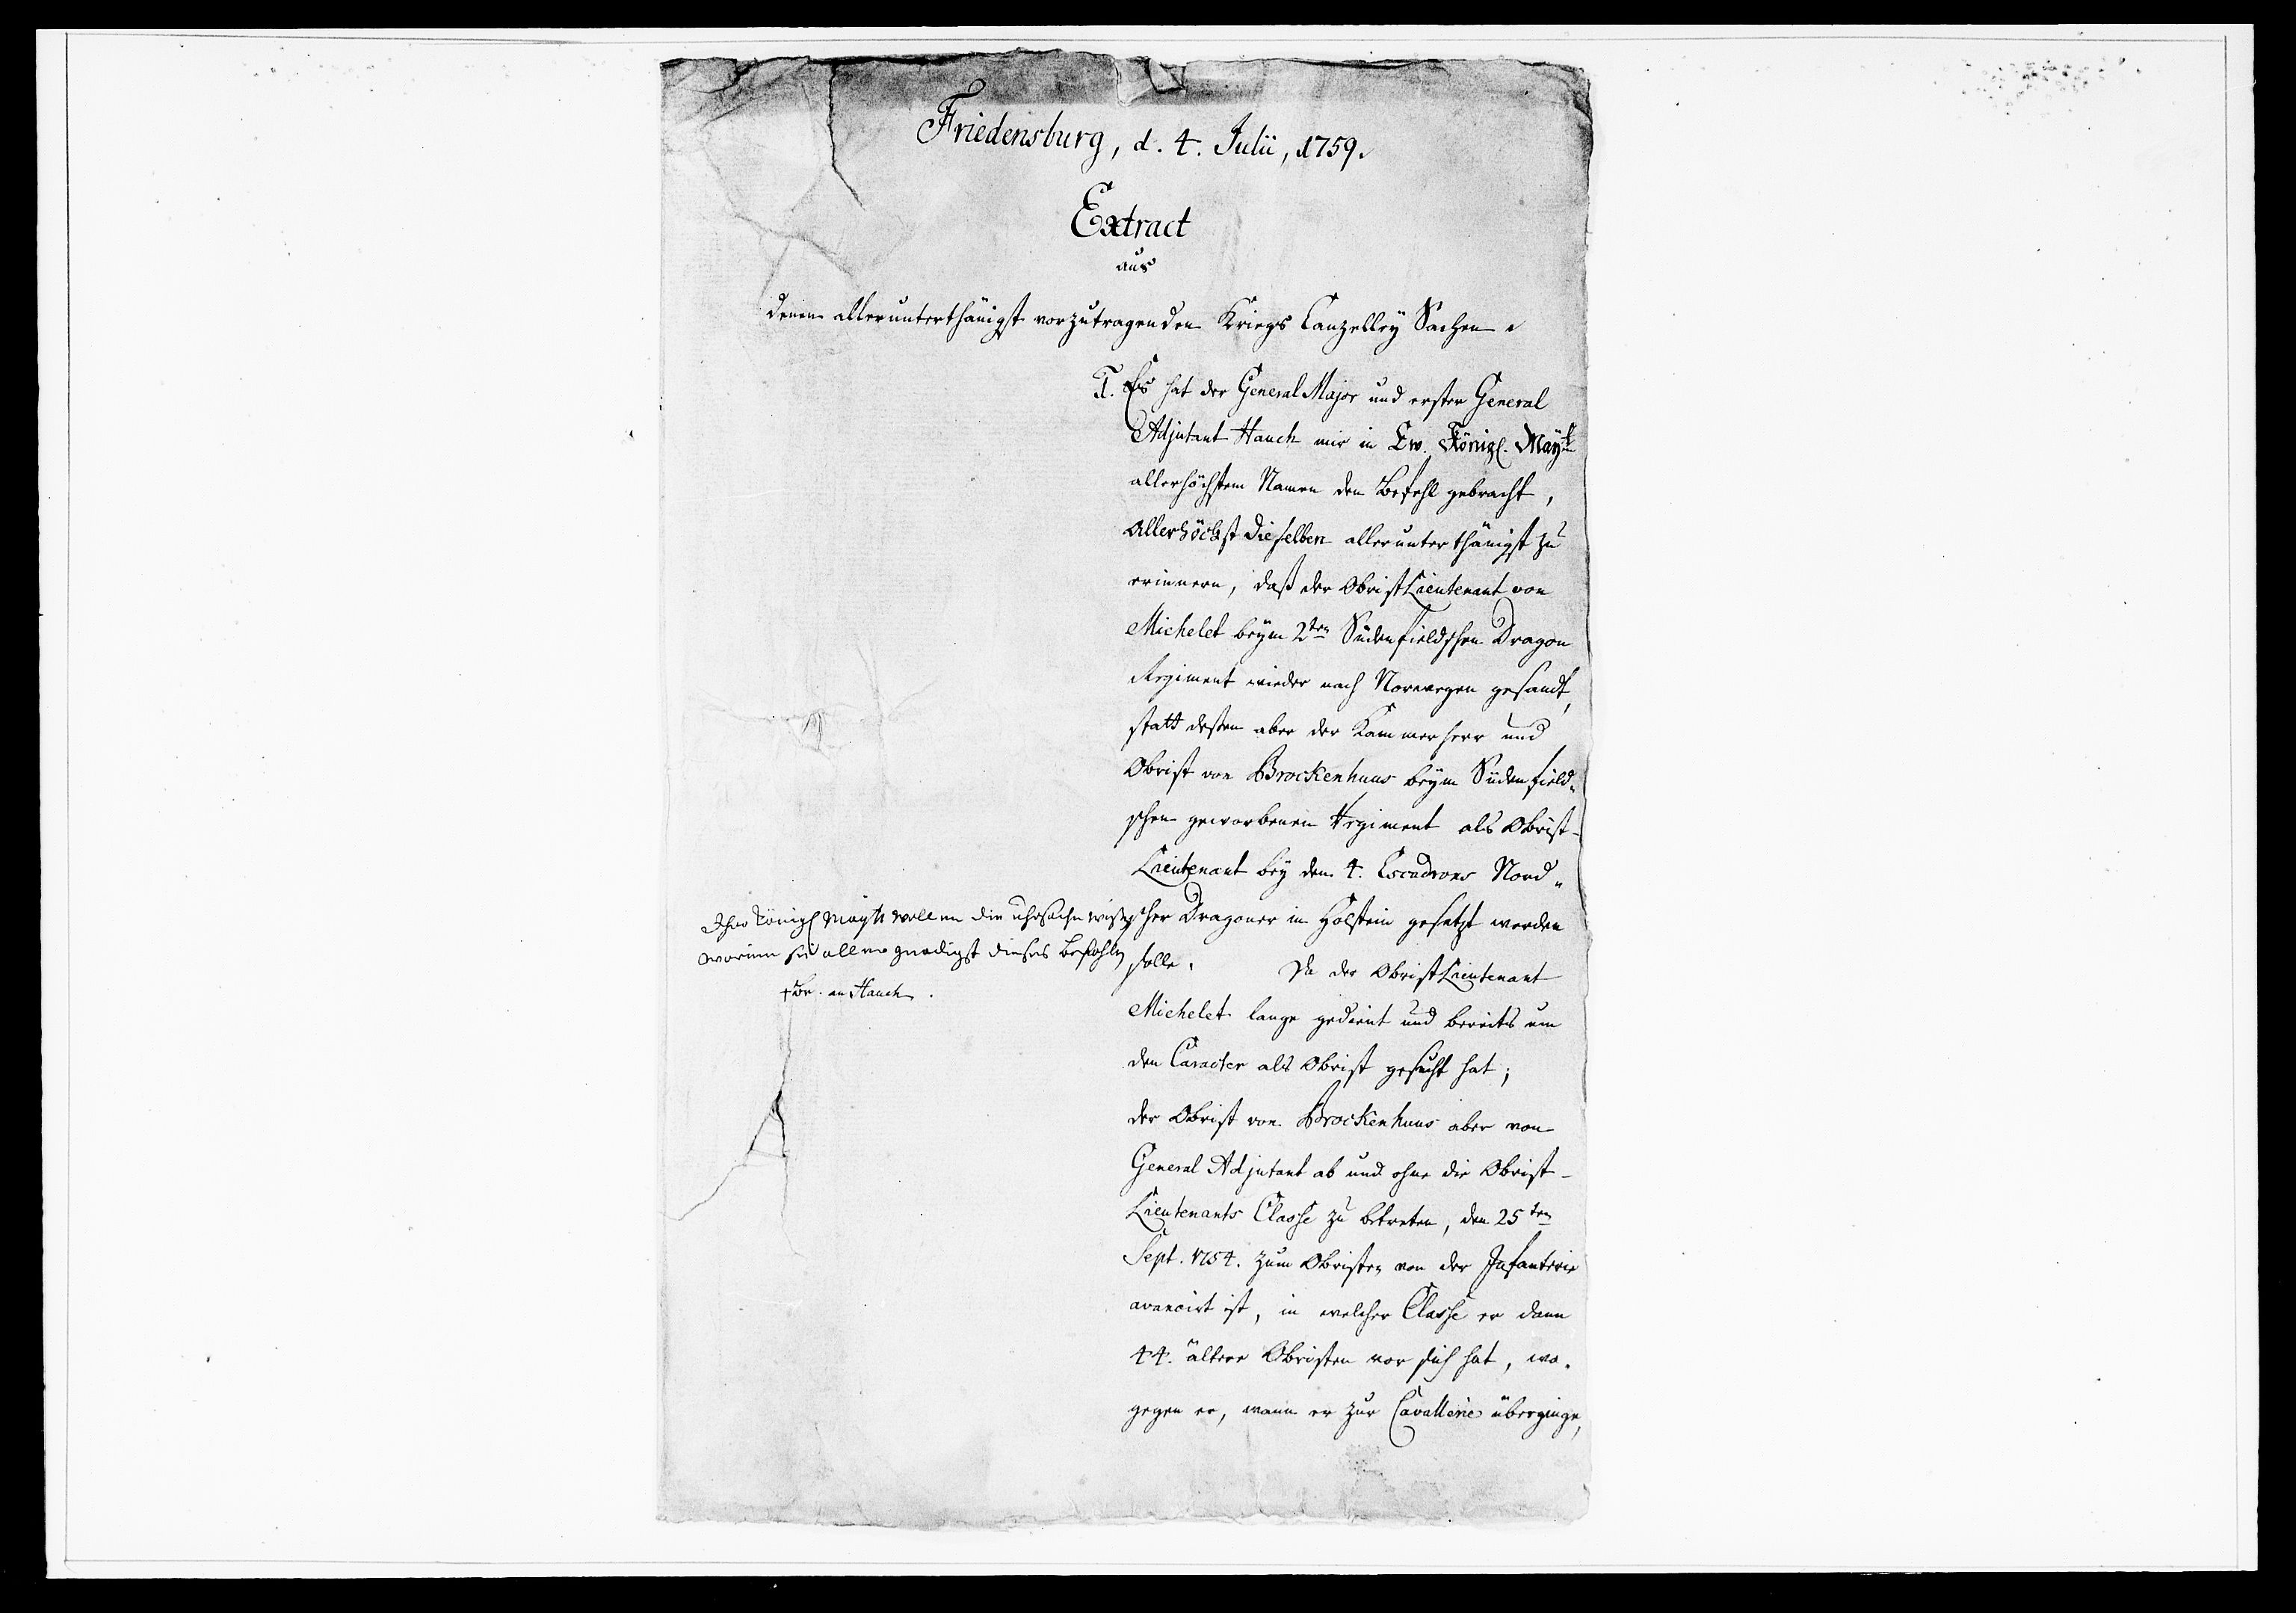 Friedensburg, d. 4. Julii, 1759.
Extract
aus
denen allerunterthänigst vorzutragenden Kriegs Canzelleÿ Sachen.
1. Es hat der General Major und erster General
Adjutant Hauch mir in Ew. Königl. Maÿtt
allerhöchstem Namen den Befehl gebracht,
Allerhöchst Dieselben allerunterthänigst zu
erinnern, daß der Obrist Lieutenant von
Michelet beÿm 2ten Südenfieldschen Dragon
Regiment wieder nach Norwegen gesandt,
statt deßen aber der Kammerherr und
Obrist von Brockenhuus beÿm Südenfield„
schen geworbenen Regiment als Obrist-
Lieutenant beÿ den 4. Escadrons Nord„
scher Dragoner in Holstein gesetzt werden
solle. Da der Obrist Lieutenant
Michelet lange gedient und bereits um
den Caracter als Obrist gesucht hat;
der Obrist von Brockenhuus aber von
General Adjutant ab und ohne die Obrist-
Lieutenants Classe zu betreten, den 25ten
Sept. 1754. zum Obristen von der Infanterie
avancirt ist, in welcher Classe er dann
44. ältere Obristen vor sich hat, wo„
gegen er, wann er zur Cavallerie überginge,
Ihro Königl Maytt wollen die uhrsache wißen
worum sie aller gnedigst dieses befohlen
† Br. an Hauch.